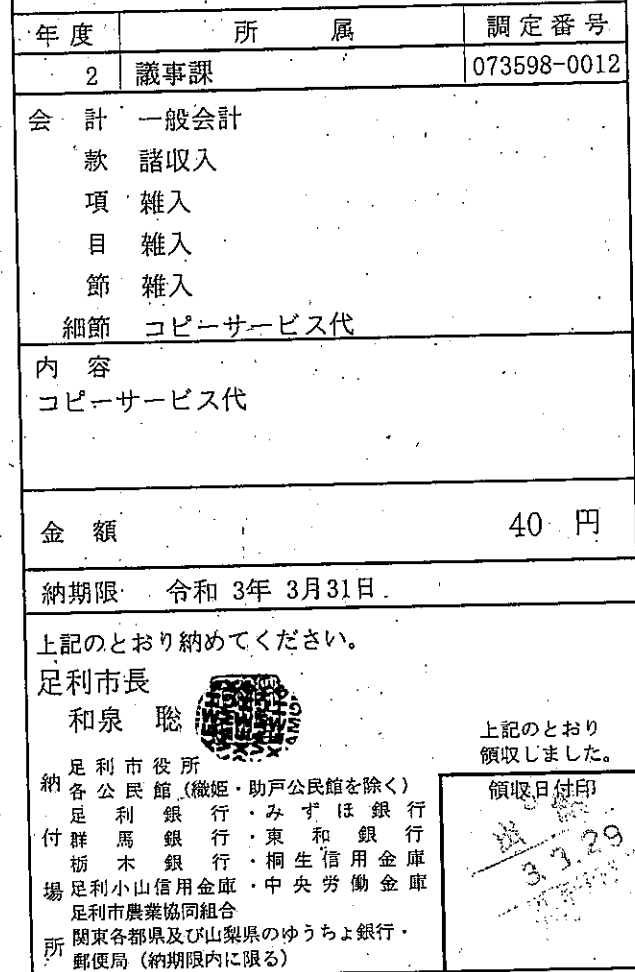 年度 所属 調定番号
2 議事課 073598-0012
会計 一般会計
款 諸収入
項 雑入
目 雑入
節 雑入
細節 コピーサービス代
内容
コピーサービス代
金額 40円
納期限 令和 3年 3月31日
上記のとおり納めてください。
足利市長
和泉 聡
上記のとおり
領収しました。
領収日付印
3.3.29
納付場所
足利市役所
各公民館(織姫・助戸公民館を除く)
足利銀行・みずほ銀行
群馬銀行・東和銀行
栃木銀行・桐生信用金庫
足利小山信用金庫・中央労働金庫
足利市農業協同組合
関東各都県及び山梨県のゆうちょ銀行・
郵便局(納期限内に限る)